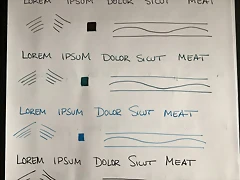 LOREM IPSUM DOLOR SICUT MEAT
LOREM IPSUM DOLOR SICUT MEAT
LOREM IPSUM DOLOR SICUT MEAT
LOREM IPSUM DOLOR SICUT MEAT